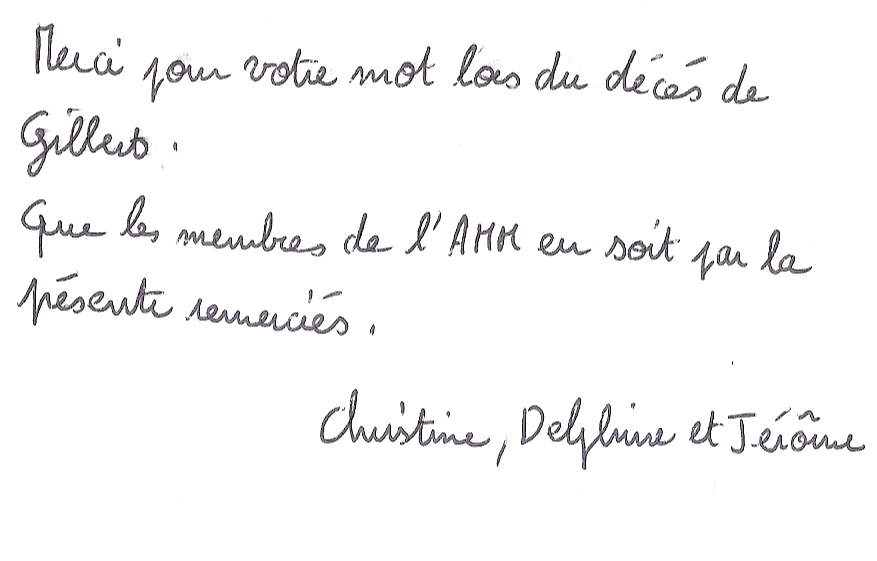 Merci pour votre mot lors du décés de
Gilbert.
Que les membres de l'AMM en soit par la
présente remerciés.
Christine, Delphine et Jérôme